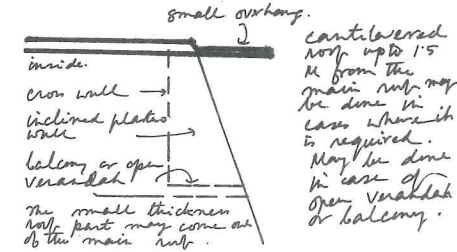 small overhang.
inside.
cross wall
inclined plaster
wall
balcony or open
verandah
The small thickness
roof part may come out
of the main roof.
cantilevered
roof upto 1.5
M from the
main roof may
be done in
cases where it
is required.
May be done
in case of
open verandah
or balcony.